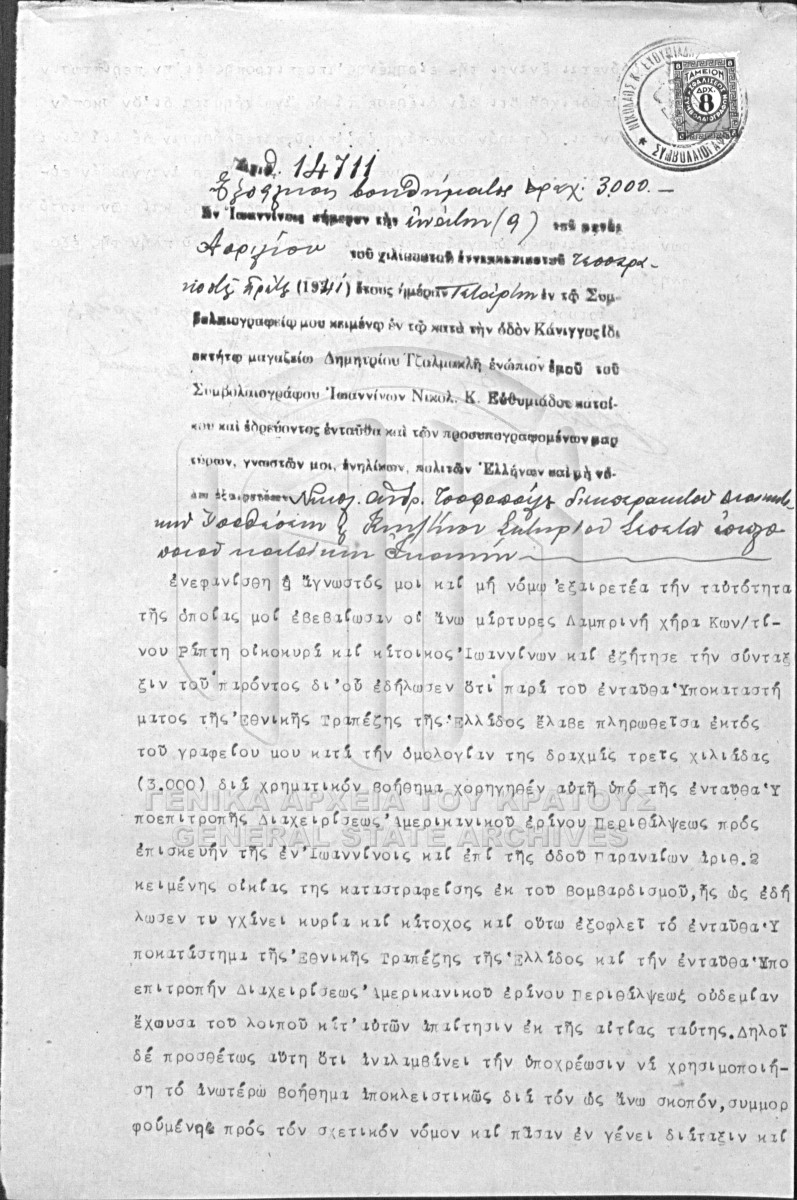 ΝΙΚΟΛΑΟΣ Κ. ΕΥΘΥΜΙΑΔΗΣ
ΣΥΜΒΟΛΑΙΟΓΡΑΦΟΣ
ΤΑΜΕΙΟΝ
ΔΡΧ.
8
Ἀριθ. 14711
Ἐξόφλησις βοηθήματος δραχ. 3.000.—
Ἐν Ἰωαννίνοις σήμερον τὴν ἐννάτην (9) τοῦ μηνὸς
Ἀπριλίου τοῦ χιλιοστοῦ ἐννεακοσιοστοῦ τεσσαρα-
κοστοῦ πρώτου (1941) ἔτους ἡμέραν Τετάρτην ἐν τῷ Συμ-
βολαιογραφείῳ μου κειμένῳ ἐν τῷ κατὰ τὴν ὁδὸν Κάνιγγος ἰδι
οκτήτῳ μαγαζείῳ Δημητρίου Τζαλμακλῆ ἐνώπιον ἐμοῦ τοῦ
Συμβολαιογράφου Ἰωαννίνων Νικολ. Κ. Εὐθυμιάδου κατοί-
κου καὶ ἑδρεύοντος ἐνταῦθα καὶ τῶν προσυπογραφομένων μαρ
τύρων, γνωστῶν μοι, ἐνηλίκων, πολιτῶν Ἑλλήνων καὶ μὴ νό-
μῳ ἐξαιρετέων Νικολ. Ἀνδρ.
ἐνεφανίσθη ἡ ἄγνωστός μοι καί μή νόμῳ ἐξαιρετέα τήν ταὐτότητα
τῆς ὁποίας μοί ἐβεβαίωσαν οἱ ἄνω μάρτυρες Λαμπρινή χήρα Κων/τί-
νου Ρίπτη οἰκοκυρά καί κάτοικος Ἰωαννίνων καί ἐζήτησε τήν σύνταξ
ξιν τοῦ παρόντος δι' οὗ ἐδήλωσεν ὅτι παρά τοῦ ἐνταῦθα Ὑποκαταστή
ματος τῆς Ἐθνικῆς Τραπέζης τῆς Ἑλλάδος ἔλαβε πληρωθεῖσα ἐκτός
τοῦ γραφείου μου κατά τήν ὁμολογίαν της δραχμάς τρεῖς χιλιάδας
(3.000) διά χρηματικόν βοήθημα χορηγηθέν αὐτῇ ὑπό τῆς ἐνταῦθα Ὑ
ποεπιτροπῆς Διαχειρίσεως Ἀμερικανικοῦ ἐράνου Περιθάλψεως πρός
ἐπισκευήν τῆς ἐν Ἰωαννίνοις καί ἐπί τῆς ὁδοῦ Παραναίων ἀριθ. 2
κειμένης οἰκίας της καταστραφείσης ἐκ τοῦ βομβαρδισμοῦ, ἧς ὡς ἐδή
λωσεν τυγχάνει κυρία καί κάτοχος καί οὕτω ἐξοφλεῖ τό ἐνταῦθα Ὑ
ποκατάστημα τῆς Ἐθνικῆς Τραπέζης τῆς Ἑλλάδος καί τήν ἐνταῦθα Ὑπο
επιτροπήν Διαχειρίσεως Ἀμερικανικοῦ ἐράνου Περιθάλψεως οὐδεμίαν
ἔχουσα τοῦ λοιποῦ κατ' αὐτῶν ἀπαίτησιν ἐκ τῆς αἰτίας ταύτης. Δηλοῖ
δέ προσθέτως αὕτη ὅτι ἀναλαμβάνει τήν ὑποχρέωσιν νά χρησιμοποιή-
ση τό ἀνωτέρω βοήθημα ἀποκλειστικῶς διά τόν ὡς ἄνω σκοπόν, συμμορ
φουμένη πρός τόν σχετικόν νόμον καί πᾶσαν ἐν γένει διάταξιν καί
ΓΕΝΙΚΑ ΑΡΧΕΙΑ ΤΟΥ ΚΡΑΤΟΥΣ
GENERAL STATE ARCHIVES